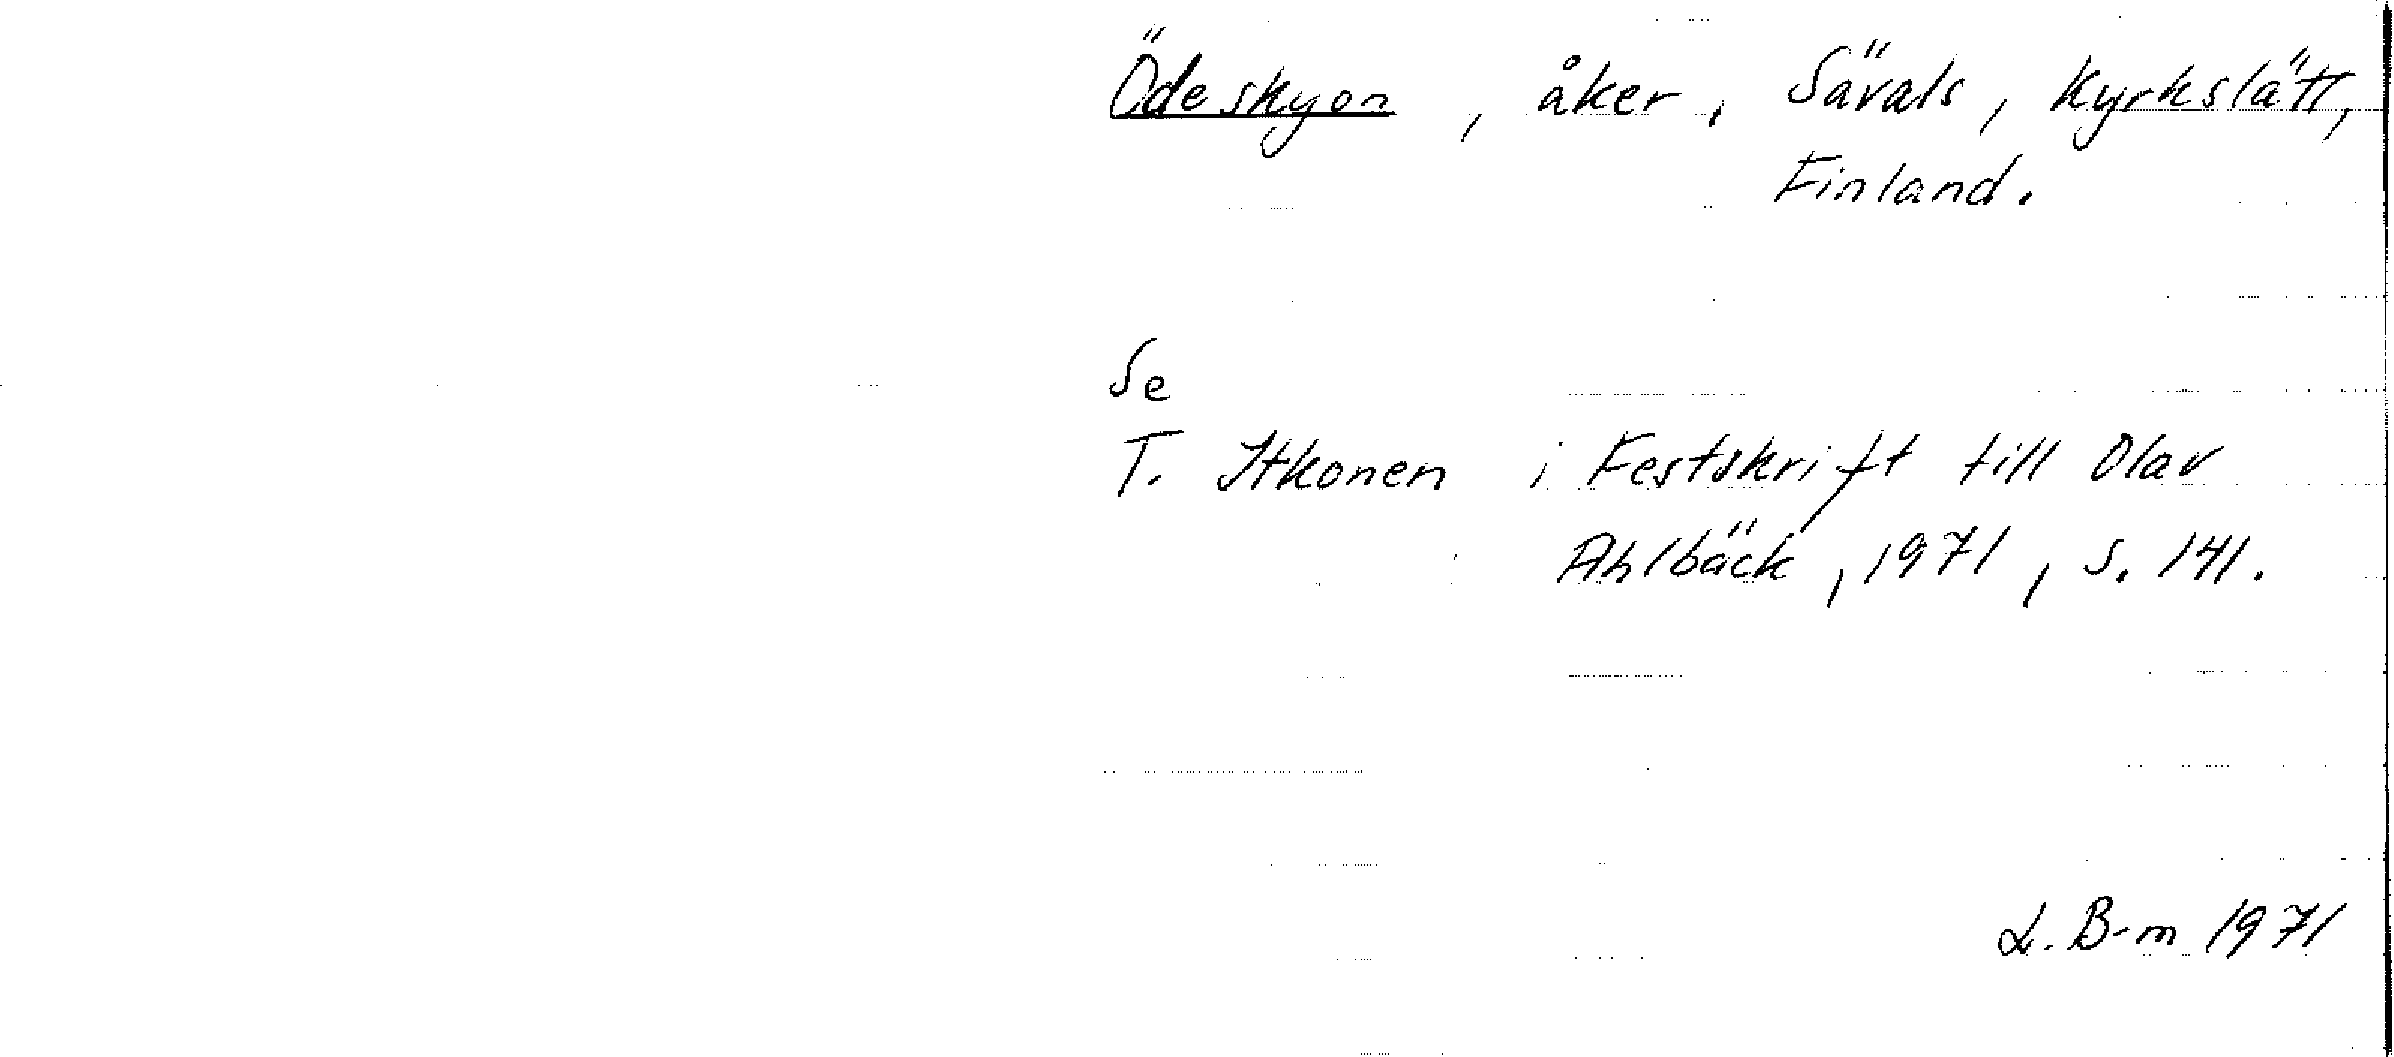 Ödeskyon, åker, Sävals, Kyrkslätt,
Finland.
Se
T. Itkonen i Festskrift till Olav
Ahlbäck, 1971, s. 141.
L. B-m 1971